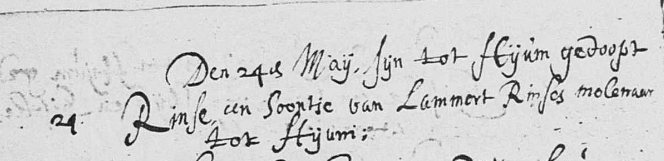 Den 24s Maÿ. sÿn tot Hÿum gedoopt
24 Rinse, een soontie van Lammert Rinses molenaar
tot Hÿum: